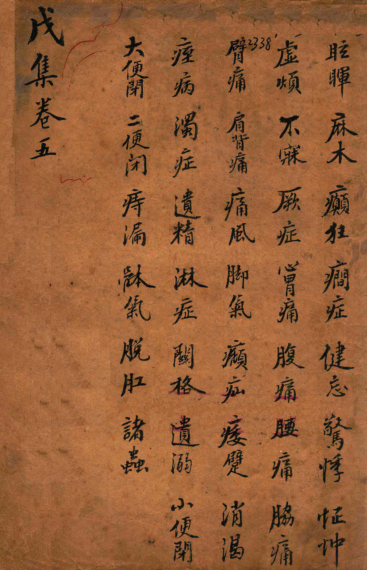 眩暉 麻木 癲狂 癇症 健忘 驚悸 怔忡
虛煩 不寐 厥症 心胃痛 腹痛 腰痛 脇痛
2338
臂痛 肩背痛 痛風 脚氣 癩疝 痿躄 消渴
痓病 濁症 遺精 淋症 關格 遺溺 小便閉
大便閉 二便闭 痔漏 躰氣 脫肛 諸蟲
戊集卷五